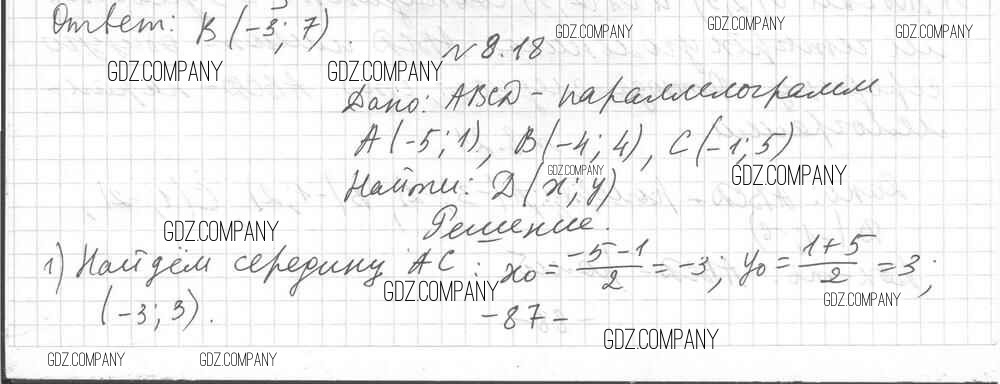 Ответ: B(-3; 7).
GDZ.COMPANY GDZ.COMPANY GDZ.COMPANY
N 8.18
GDZ.COMPANY GDZ.COMPANY
Дано: ABCD - параллелограмм
A(-5; 1), B(-4; 4), C(-1; 5)
GDZ.COMPANY GDZ.COMPANY
Найти: D(x; y)
Решение.
GDZ.COMPANY
1) Найдём середину AC: x₀ = (-5-1)/2 = -3; y₀ = (1+5)/2 = 3;
GDZ.COMPANY GDZ.COMPANY
(-3; 3).
-87-
GDZ.COMPANY
GDZ.COMPANY GDZ.COMPANY